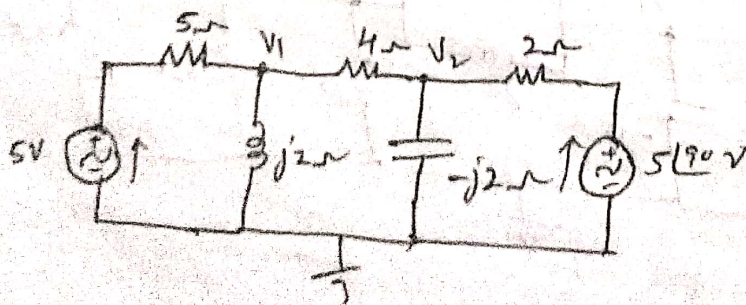 5Ω V1 4Ω V2 2Ω
5V + - j2Ω -j2Ω + - 5∠90 V